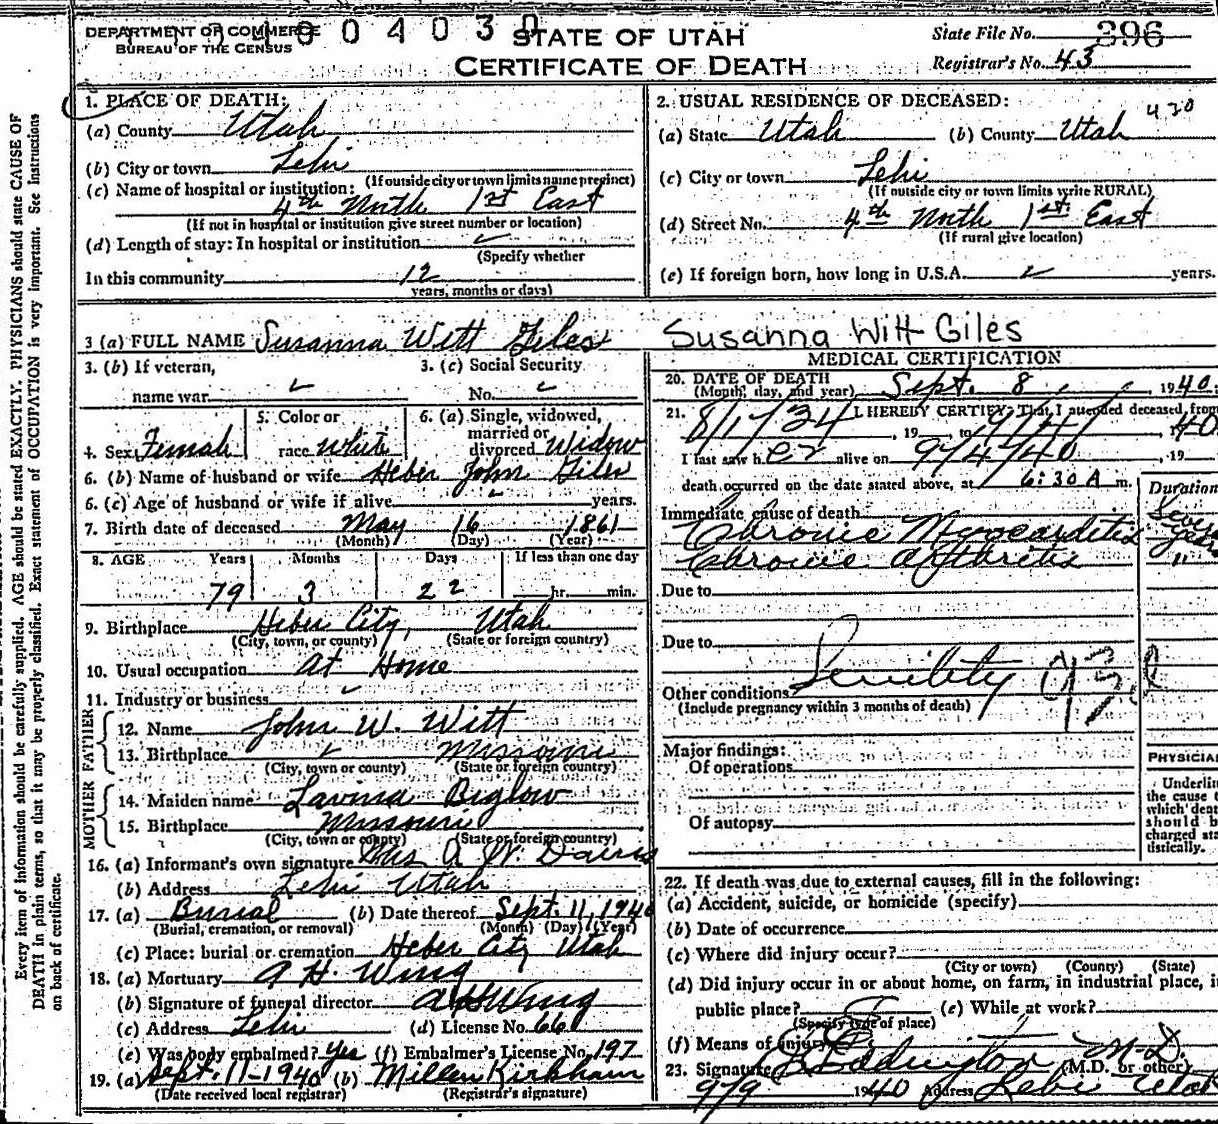 DEPARTMENT OF COMMERCE
BUREAU OF THE CENSUS
0 0 4 0 3 0
STATE OF UTAH
CERTIFICATE OF DEATH
State File No. 396
Registrar's No. 43
1. PLACE OF DEATH:
(a) County Utah
(b) City or town Lehi
(If outside city or town limits name precinct)
(c) Name of hospital or institution:
4th North 1st East
(If not in hospital or institution give street number or location)
(d) Length of stay: In hospital or institution ✓
(Specify whether
In this community 12
years, months or days)
2. USUAL RESIDENCE OF DECEASED: 420
(a) State Utah (b) County Utah
(c) City or town Lehi
(If outside city or town limits write RURAL)
(d) Street No. 4th North 1st East
(If rural give location)
(e) If foreign born, how long in U.S.A. ✓ years.
3 (a) FULL NAME Susanna Witt Giles Susanna Witt Giles
3. (b) If veteran, name war ✓
3. (c) Social Security No. ✓
4. Sex Female
5. Color or race White
6. (a) Single, widowed, married or divorced Widow
6. (b) Name of husband or wife Heber John Giles
6. (c) Age of husband or wife if alive ✓ years.
7. Birth date of deceased May 16 1861
(Month) (Day) (Year)
8. AGE Years Months Days If less than one day
79 3 22 hr. min.
9. Birthplace Heber City, Utah
(City, town, or county) (State or foreign country)
10. Usual occupation At Home
11. Industry or business ✓
FATHER
12. Name John W. Witt
13. Birthplace ✓ Missouri
(City, town or county) (State or foreign country)
MOTHER
14. Maiden name Lavina Biglow
15. Birthplace Missouri
(City, town or county) (State or foreign country)
16. (a) Informant's own signature Mrs A W. Davis
(b) Address Lehi Utah
17. (a) Burial (b) Date thereof Sept. 11, 1940
(Burial, cremation, or removal) (Month) (Day) (Year)
(c) Place: burial or cremation Heber City Utah
18. (a) Mortuary A H. Wing
(b) Signature of funeral director A H Wing
(c) Address Lehi (d) License No. 66
(e) Was body embalmed? Yes (f) Embalmer's License No. 197
19. (a) Sept. 11-1940 (b) Millen Kirkham
(Date received local registrar) (Registrar's signature)
MEDICAL CERTIFICATION
20. DATE OF DEATH
(Month, day, and year) Sept. 8, 1940
21. I HEREBY CERTIFY, That I attended deceased from
8/1/34, 19 to 9/4/, 40
I last saw her alive on 9/4/40, 19
death occurred on the date stated above, at 6:30 A m.
Duration
Immediate cause of death
Chronic Myocarditis Several years
Chronic Arthritis "
Due to
Due to
Other conditions Senility 93
(Include pregnancy within 3 months of death)
Major findings:
Of operations
Of autopsy
PHYSICIAN
Underlin
the cause t
which deat
should b
charged sta
tistically.
22. If death was due to external causes, fill in the following:
(a) Accident, suicide, or homicide (specify)
(b) Date of occurrence
(c) Where did injury occur?
(City or town) (County) (State)
(d) Did injury occur in or about home, on farm, in industrial place, i
public place? (e) While at work?
(Specify type of place)
(f) Means of injury
23. Signature Eddington M.D.
(M.D. or other)
9/9 1940 Address Lehi Utah
Every item of information should be carefully supplied. AGE should be stated EXACTLY. PHYSICIANS should state CAUSE OF
DEATH in plain terms, so that it may be properly classified. Exact statement of OCCUPATION is very important. See Instructions
on back of certificate.